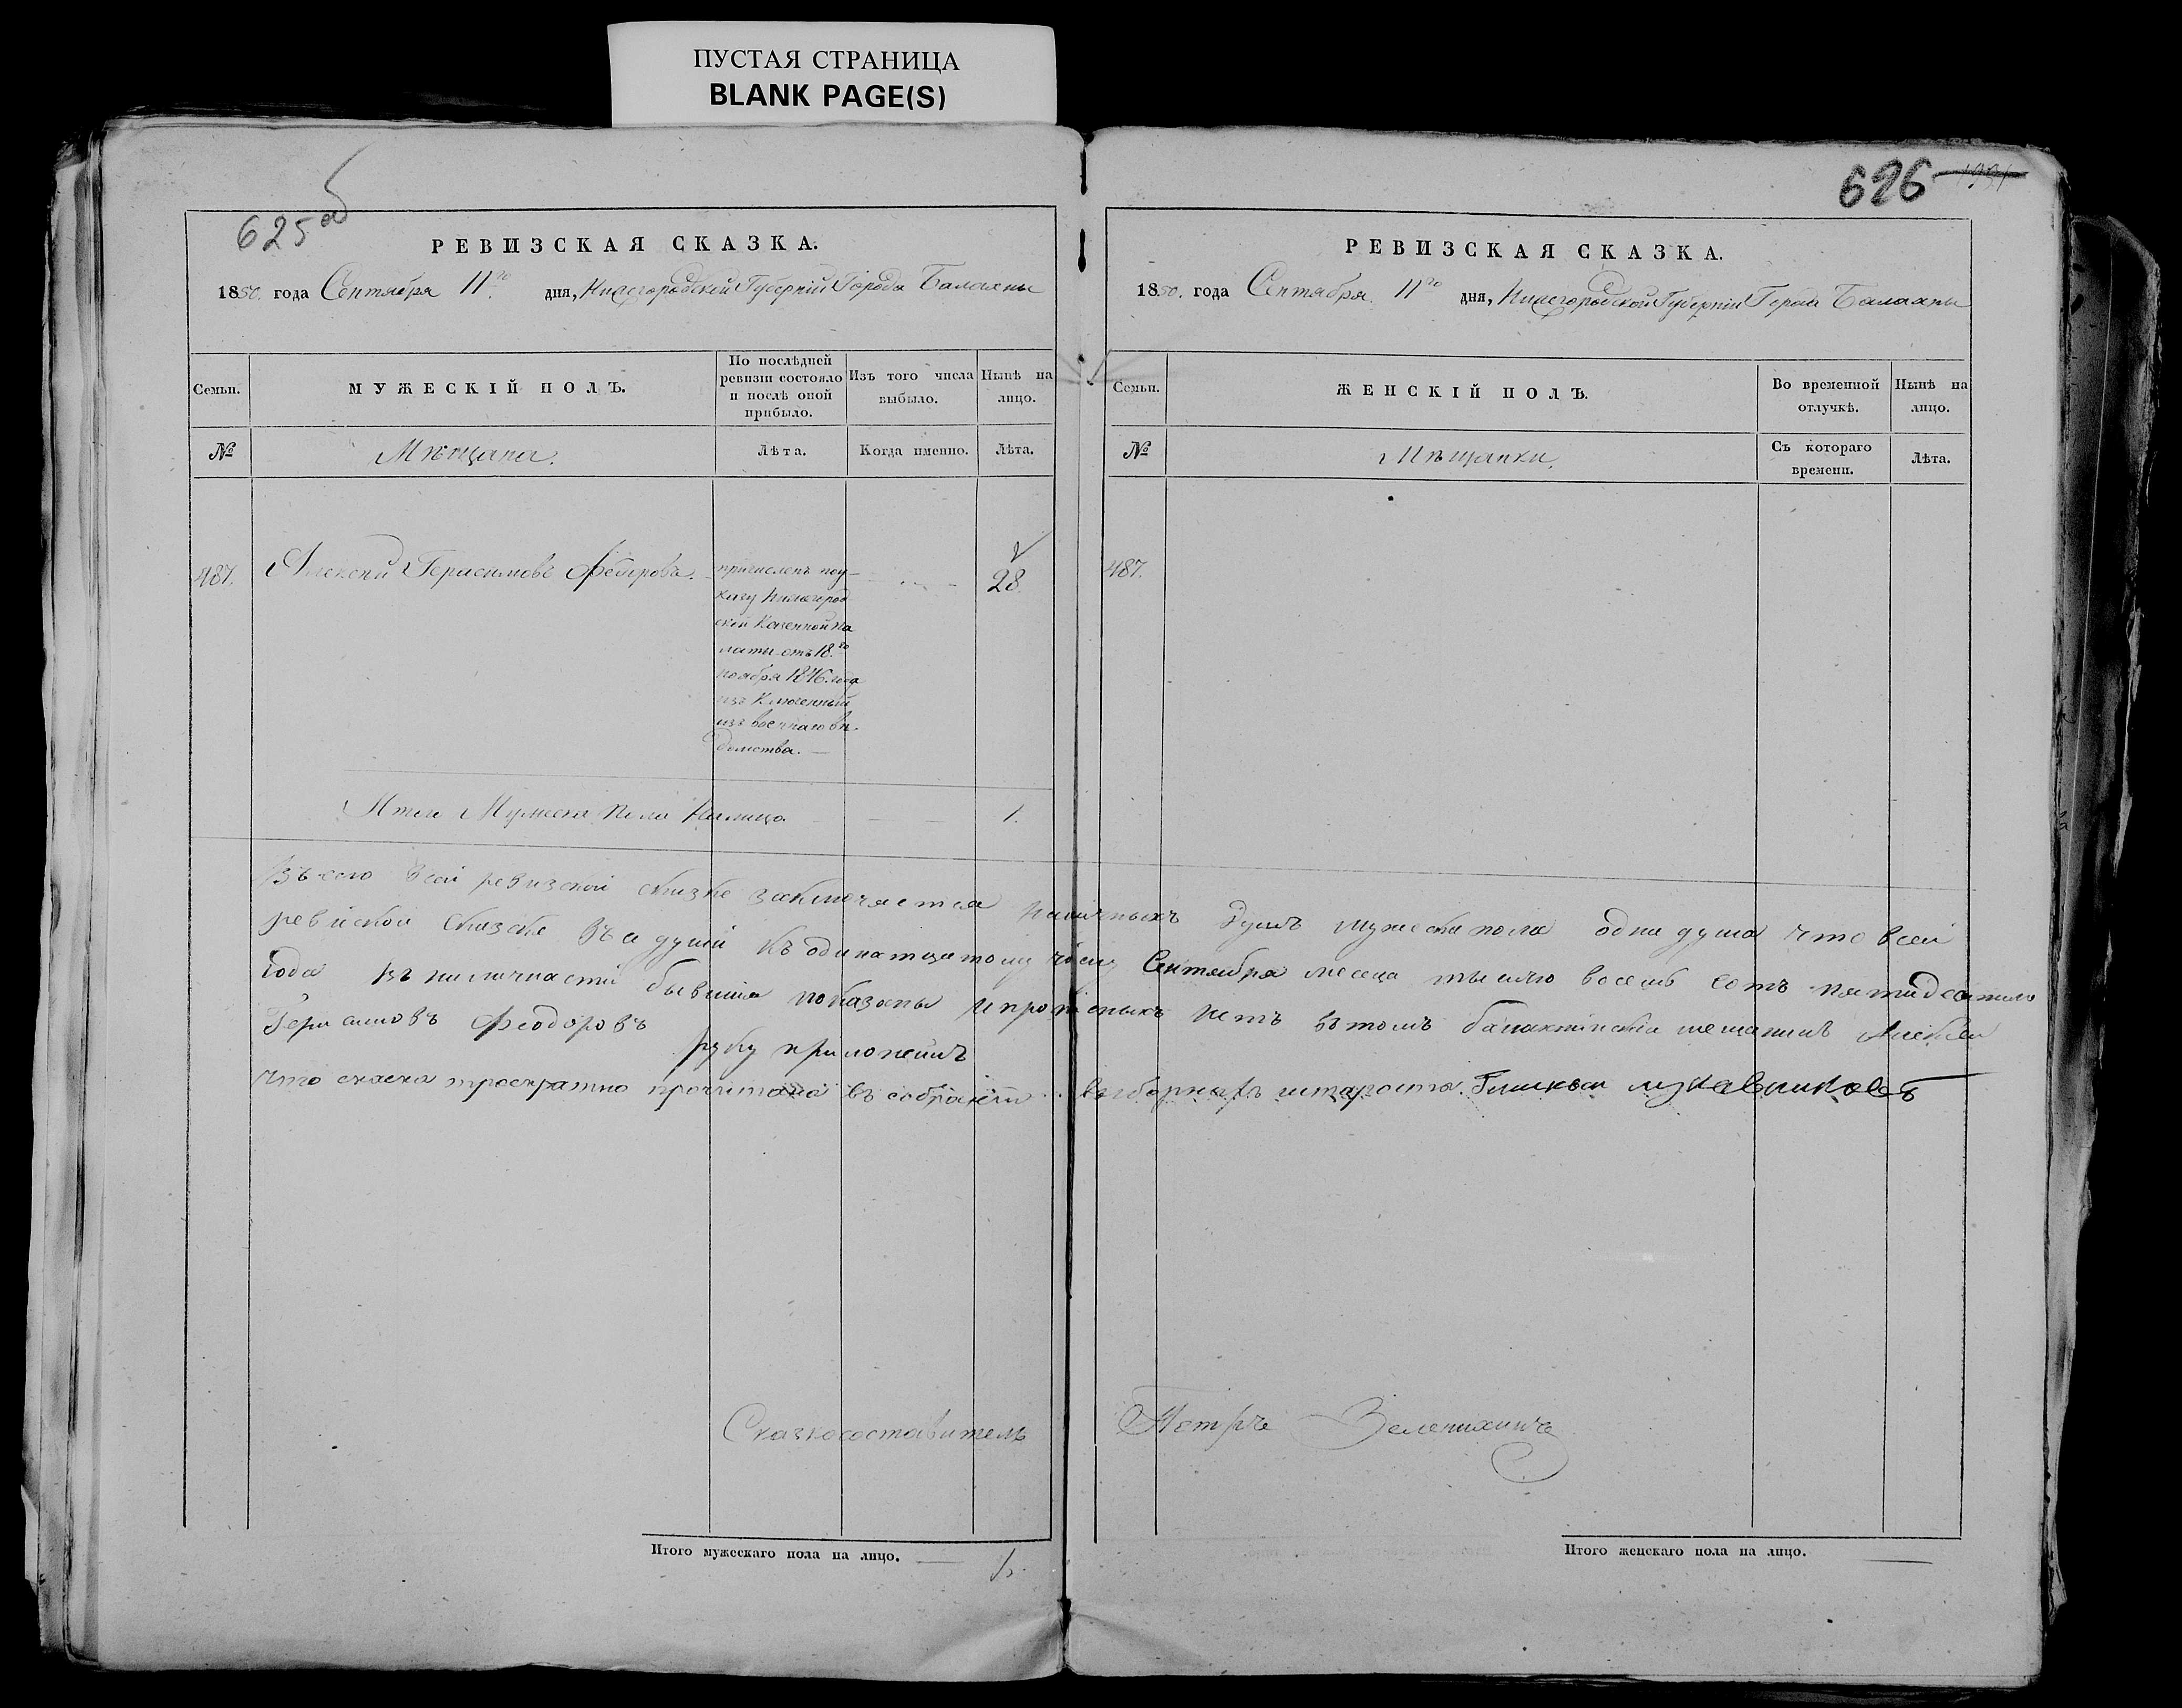 ПУСТАЯ СТРАНИЦА
BLANK PAGE(S)
625 об
РЕВИЗСКАЯ СКАЗКА.
1850. года Сентября 11го дня, Нижегородской Губерніи Города Балахны
Семьи. МУЖЕСКІЙ ПОЛЪ. По послѣдней ревизіи состояло и послѣ оной прибыло. Изъ того числа выбыло. Нынѣ на лицо.
№ Мѣщана. Лѣта. Когда именно. Лѣта.
487. Алексѣй Герасимовъ Федоровъ. 28
причисленъ поу-
казу Нижегород
ской Казенной Па
латы отъ 18.го
ноября 1846. года
изъ военнаго вѣ
домства.
Итого Мужеска Пола Налицо 1.
626
РЕВИЗСКАЯ СКАЗКА.
1850. года Сентября 11го дня, Нижегородской Губерніи Города Балахны
Семьи. ЖЕНСКІЙ ПОЛЪ. Во временной отлучкѣ. Нынѣ на лицо.
№ Мѣщанки. Съ котораго времени. Лѣта.
487.
всей ревизской сказке заключяется наличныхъ душъ мужеска пола одна душа что всей
ревиской сказке душй къ одинатцатому числу Сентебря месеца тысячю восемь сотъ пятидесятого
года въ наличности бывшия показаны ипрописныхъ нетъ вътомъ балахнински мещанинъ Алексеи
Герасимовъ Феодоровъ руку приложилъ
Что скаска троекратно прочитана въ собрании
Сказкосоставитель Петръ Зеленихинъ
Итого мужескаго пола на лицо. 1.
Итого женскаго пола на лицо.